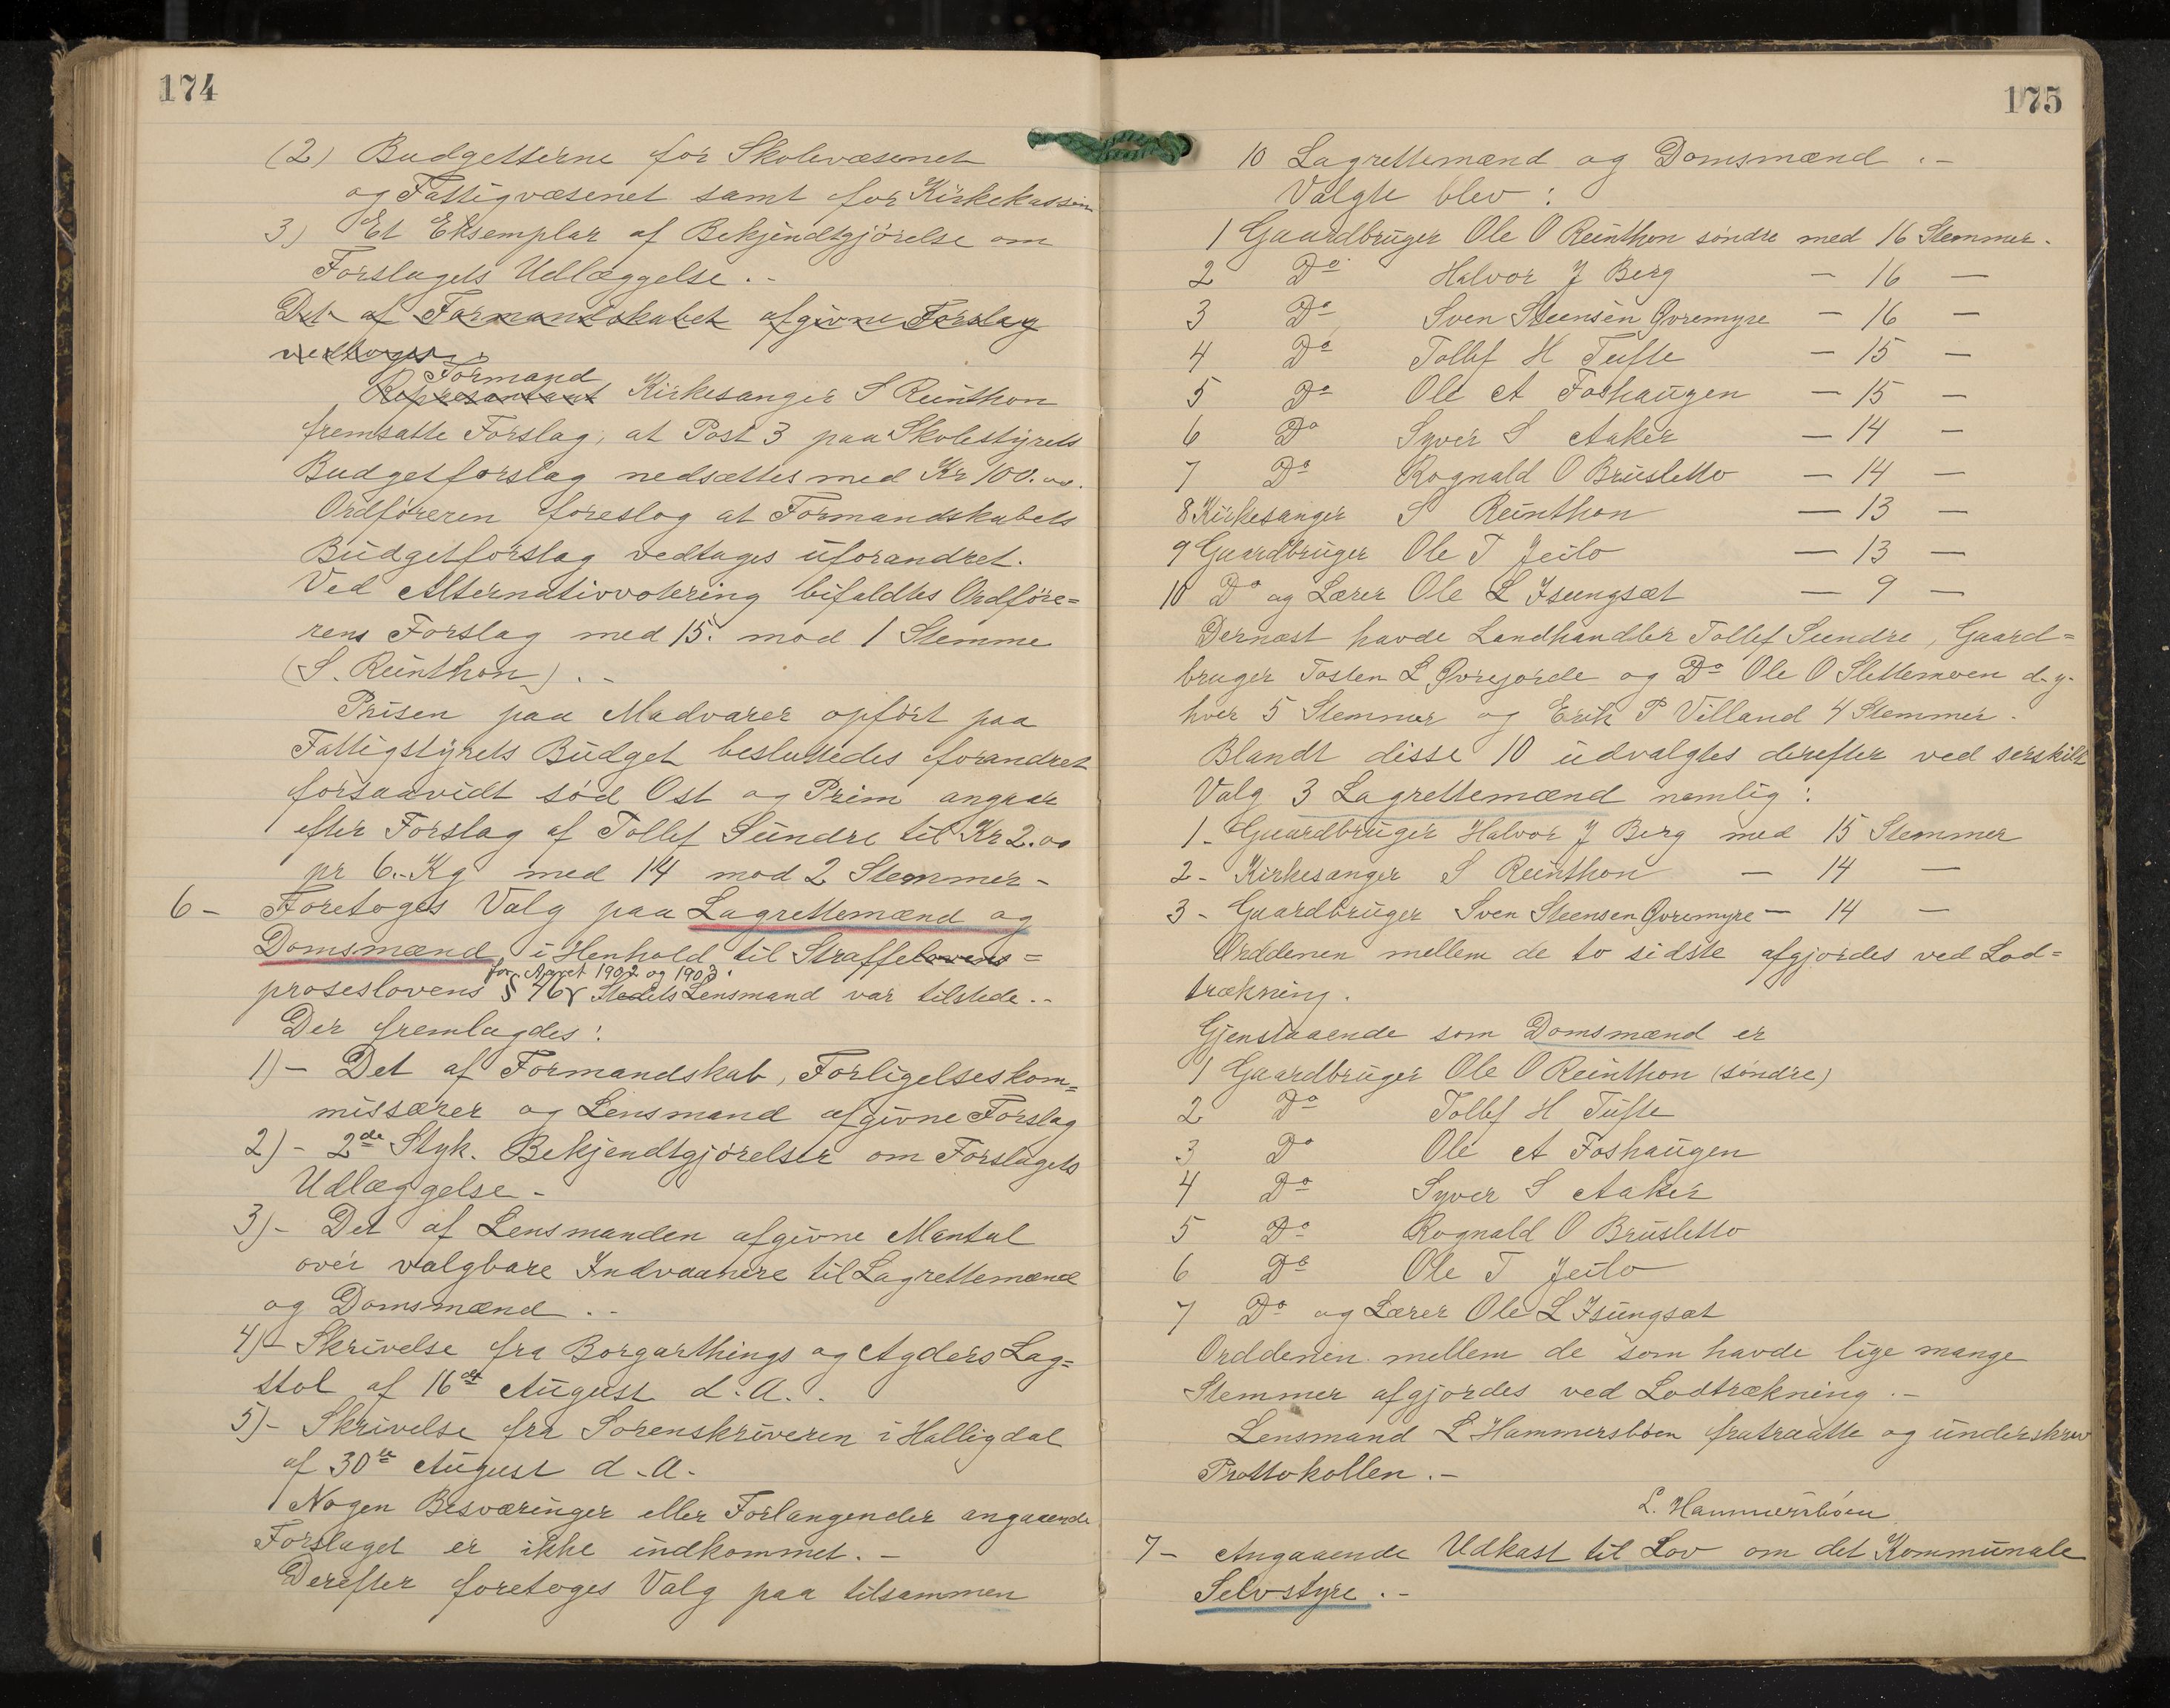 174
(2) Budgetterne for Skolevæsenet
og Fattigvæsenet samt for Kirkekassen
3) Et Eksemplar af Bekjendtgjörelse om
Forslagets Udlæggelse.-
Det af Formandskabet afgivne Forslag
vedtoges.
Formand
Repræsantant Kirkesanger S Reinthon
fremsatte Forslag, at Post 3 paa Skolestyrets
Budgetforslag nedsættes med Kr 100.00.
Ordföreren foreslog at Formandskabets
Budgetforslag vedtages uforandret.
Ved Alternativvotering bifaldtes Ordföre=
rens Forslag med 15. mod 1 Stemme
(S. Reinthon). -
Prisen paa Madvarer opfört paa
Fattigstyrets Budget besluttedes forandret
forsaavidt söd Ost og Prim angaar
efter Forslag af Tollef Sundre til Kr 2.00
pr 6.-Kg med 14 mod 2 Stemmer-
6 - Foretoges Valg paa Lagrettemænd og
Domsmænd, i Henhold til Straffelovens=
for Aaret 1902 og 1903.
proseslovens § 46 Stedets Lensmand var tilstede.-
Der fremlagdes:
1)- Det af Formandskab, Forligelseskom=
missærer og Lensmand afgivne Forslag
2)- 2de Styk. Bekjendtgjörelser om Forslagets
Udlæggelse-
3)- Det af Lensmanden afgivne Mantal
over valgbare Indvaanere til Lagrettemænd
og Domsmænd.-
4)- Skrivelse fra Borgarthings og Agders Lag=
stol af 16de August d. A..
5)- Skrivelse fra Sorenskriveren i Halligdal
af 30te August d.A.
Nogen Besværinger eller Forlangender angaaende
Forslaget er ikke indkommet.-
Derefter foretoges Valg paa tilsammen
175
10 Lagrettemænd og Domsmænd.-
Valgte blev:
1 Gaardbruger Ole O Reinthon söndre med 16 Stemmer.
2 Do Halvor J Berg - 16 -
3 Do Sven Steensen Øvremyre - 16 -
4 Do Tollef H Tufte - 15 -
5 Do Ole A Foshaugen - 15 -
6 Do Syver S Aaker - 14 -
7 Do Rognald O Brusletto - 14 -
8 Kirkesanger S Reinthon - 13 -
9 Gaardbruger Ole T Jeilo - 13 -
10 Do og Lærer Ole L Isungsæt - 9 -
Dernæst havde Landhandler Tollef Sundre, Gaard=
bruger Tosten L Øvrejorde og Do Ole O Slettemoen d.y.
hver 5 Stemmer og Erik P Villand 4 Stemmer.
Blandt disse 10 udvalgtes derefter ved serskilt
Valg 3 Lagrettemænd nemlig:
1- Gaardbruger Halvor J Berg med 15 Stemmer
2- Kirkesanger S Reinthon - 14 -
3- Gaardbruger Sven Steensen Øvremyre - 14 -
Orddenen mellem de to sidste afgjordes ved Lod=
trækning.
Gjenstaaende som Domsmænd er
1 Gaardbruger Ole O Reinthon (söndre)
2 Do Tollef H Tufte
3 Do Ole A Foshaugen
4 Do Syver S Aaker
5 Do Rognald O Brusletto
6 Do Ole T Jeilo
7 Do og Lærer Ole L Isungsæt
Orddenen mellem de som havde lige mange
Stemmer afgjordes ved Lodtrækning.-
Lensmand L Hammersböen fratraatte og underskrev
Prottokollen.-
L. Hammersböen
7- Angaaende Udkast til Lov om det Kommunale
Selvstyre.-